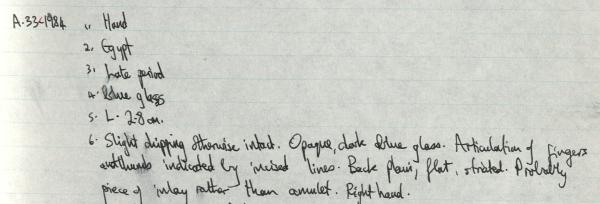 A.33-1984 1. Hand
2. Egypt
3. Late period
4. Blue glass
5. L. 2.8 cm.
6. Slight chipping otherwise intact. Opaque, dark blue glass. Articulation of fingers
and thumb indicated by incised lines. Back plain, flat, striated. Probably
piece of inlay rather than amulet. Right hand.